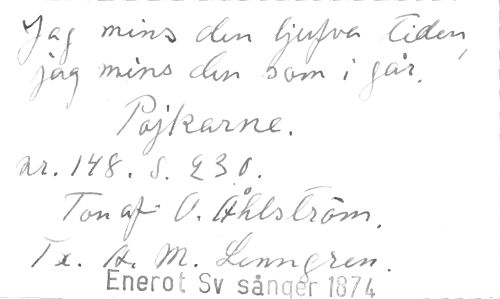 Jag mins den ljufva tiden,
jag mins den som i går.
Pojkarne.
nr. 148. S. 230.
Ton af O. Åhlström.
Tx. A. M. Lenngren.
Enerot Sv sånger 1874